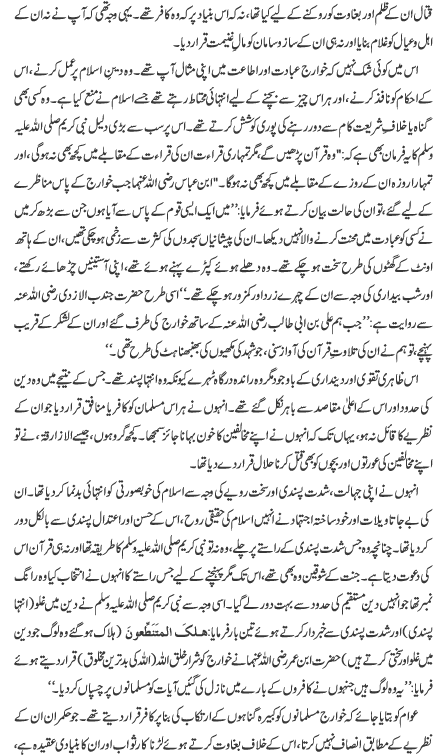 قتال ان کے ظلم اور بغاوت کو روکنے کے لیے کیا تھا، نہ کہ اس بنیاد پر کہ وہ کافر تھے۔ یہی وجہ تھی کہ آپ نے نہ ان کے
اہل وعیال کو غلام بنایا اور نہ ہی ان کے ساز و سامان کو مالِ غنیمت قرار دیا۔
اس میں کوئی شک نہیں کہ خوارج عبادت اور اطاعت میں اپنی مثال آپ تھے۔ وہ دینِ اسلام پر عمل کرنے، اس
کے احکام کو نافذ کرنے، اور ہر اس چیز سے بچنے کے لیے انتہائی محتاط رہتے تھے جسے اسلام نے منع کیا ہے۔ وہ کسی بھی
گناہ یا خلافِ شریعت کام سے دور رہنے کی پوری کوشش کرتے تھے۔ اس پر سب سے بڑی دلیل نبی کریم صلی اللہ علیہ
وسلم کا یہ فرمان بھی ہے کہ: "وہ قرآن پڑھیں گے، مگر تمہاری قراءت ان کی قراءت کے مقابلے میں کچھ بھی نہ ہوگی، اور
تمہارا روزہ ان کے روزے کے مقابلے میں کچھ بھی نہ ہوگا۔" ابن عباس رضی اللہ عنہما جب خوارج کے پاس مناظرے
کے لیے گئے، تو ان کی حالت بیان کرتے ہوئے فرمایا: ’’میں ایک ایسی قوم کے پاس سے آیا ہوں جن سے بڑھ کر میں
نے کسی کو عبادت میں محنت کرنے والا نہیں دیکھا۔ ان کی پیشانیاں سجدوں کی کثرت سے زخمی ہو چکی تھیں، ان کے ہاتھ
اونٹ کے گھٹنوں کی طرح سخت ہو چکے تھے۔ وہ دھلے ہوئے کپڑے پہنے ہوئے تھے، اپنی آستینیں چڑھائے رکھتے،
اور شب بیداری کی وجہ سے ان کے چہرے زرد اور کمزور ہو چکے تھے۔‘‘ اسی طرح حضرت جندب الازدی رضی اللہ عنہ
سے روایت ہے: ’’جب ہم علی بن ابی طالب رضی اللہ عنہ کے ساتھ خوارج کی طرف گئے اور ان کے لشکر کے قریب
پہنچے، تو ہم نے ان کی تلاوتِ قرآن کی آواز سنی، جو شہد کی مکھیوں کی بھنبھناہٹ کی طرح تھی۔‘‘
اس ظاہری تقویٰ اور دینداری کے باوجود مگر وہ راندہ درگاہ ٹہرے کیونکہ وہ انتہا پسند تھے۔ جس کے نتیجے میں وہ دین
کی حدود اور اس کے اعلیٰ مقاصد سے باہر نکل گئے تھے۔ انہوں نے ہر اس مسلمان کو کافر یا منافق قرار دیا جو ان کے
نظریے کا قائل نہ ہو، یہاں تک کہ انہوں نے اپنے مخالفین کا خون بہانا جائز سمجھا۔ کچھ گروہوں، جیسے الازارقۃ، نے تو
اپنے مخالفین کی عورتوں اور بچوں کو بھی قتل کرنا حلال قرار دے دیا تھا۔
انہوں نے اپنی جہالت، شدت پسندی اور سخت رویے کی وجہ سے اسلام کی خوبصورتی کو انتہائی بدنما کر دیا تھا۔ ان
کی بے جا تاویلات اور خود ساختہ اجتہاد نے انہیں اسلام کی حقیقی روح، اس کے حسن اور اعتدال پسندی سے بالکل دور
کر دیا تھا۔ چنانچہ وہ جس شدت پسندی کے راستے پر چلے، وہ نہ تو نبی کریم صلی اللہ علیہ وسلم کا طریقہ تھا اور نہ ہی قرآن اس
کی دعوت دیتا ہے۔ جنت کے شوقین وہ بھی تھے، اس تک مگر پہنچنے کے لیے جس راستے کا انہوں نے انتخاب کیا وہ رانگ
نمبر تھا جو انہیں دینِ مستقیم کی حدود سے بہت دور لے گیا۔ اسی وجہ سے نبی کریم صلی اللہ علیہ وسلم نے دین میں غلو (انتہا
پسندی) اور شدت پسندی سے خبردار کرتے ہوئے تین بار فرمایا: هلك المتنطعون (ہلاک ہو گئے وہ لوگ جو دین
میں غلو اور سختی کرتے ہیں) حضرت ابن عمر رضی اللہ عنہما نے خوارج کو شرار خلق اللہ (اللہ کی بدترین مخلوق) قرار دیتے ہوئے
فرمایا: ’’یہ وہ لوگ ہیں جنہوں نے کافروں کے بارے میں نازل کی گئیں آیات کو مسلمانوں پر چسپاں کر دیا۔‘‘
عوام کو بتایا جائے کہ خوارج مسلمانوں کو کبیرہ گناہوں کے ارتکاب کی بنا پر کافر قرار دیتے تھے۔ جو حکمران ان کے
نظریے کے مطابق انصاف نہیں کرتے، ان کے خلاف بغاوت کرتے ہوئے لڑنا کارِ ثواب اور ان کا بنیادی عقیدہ ہے،